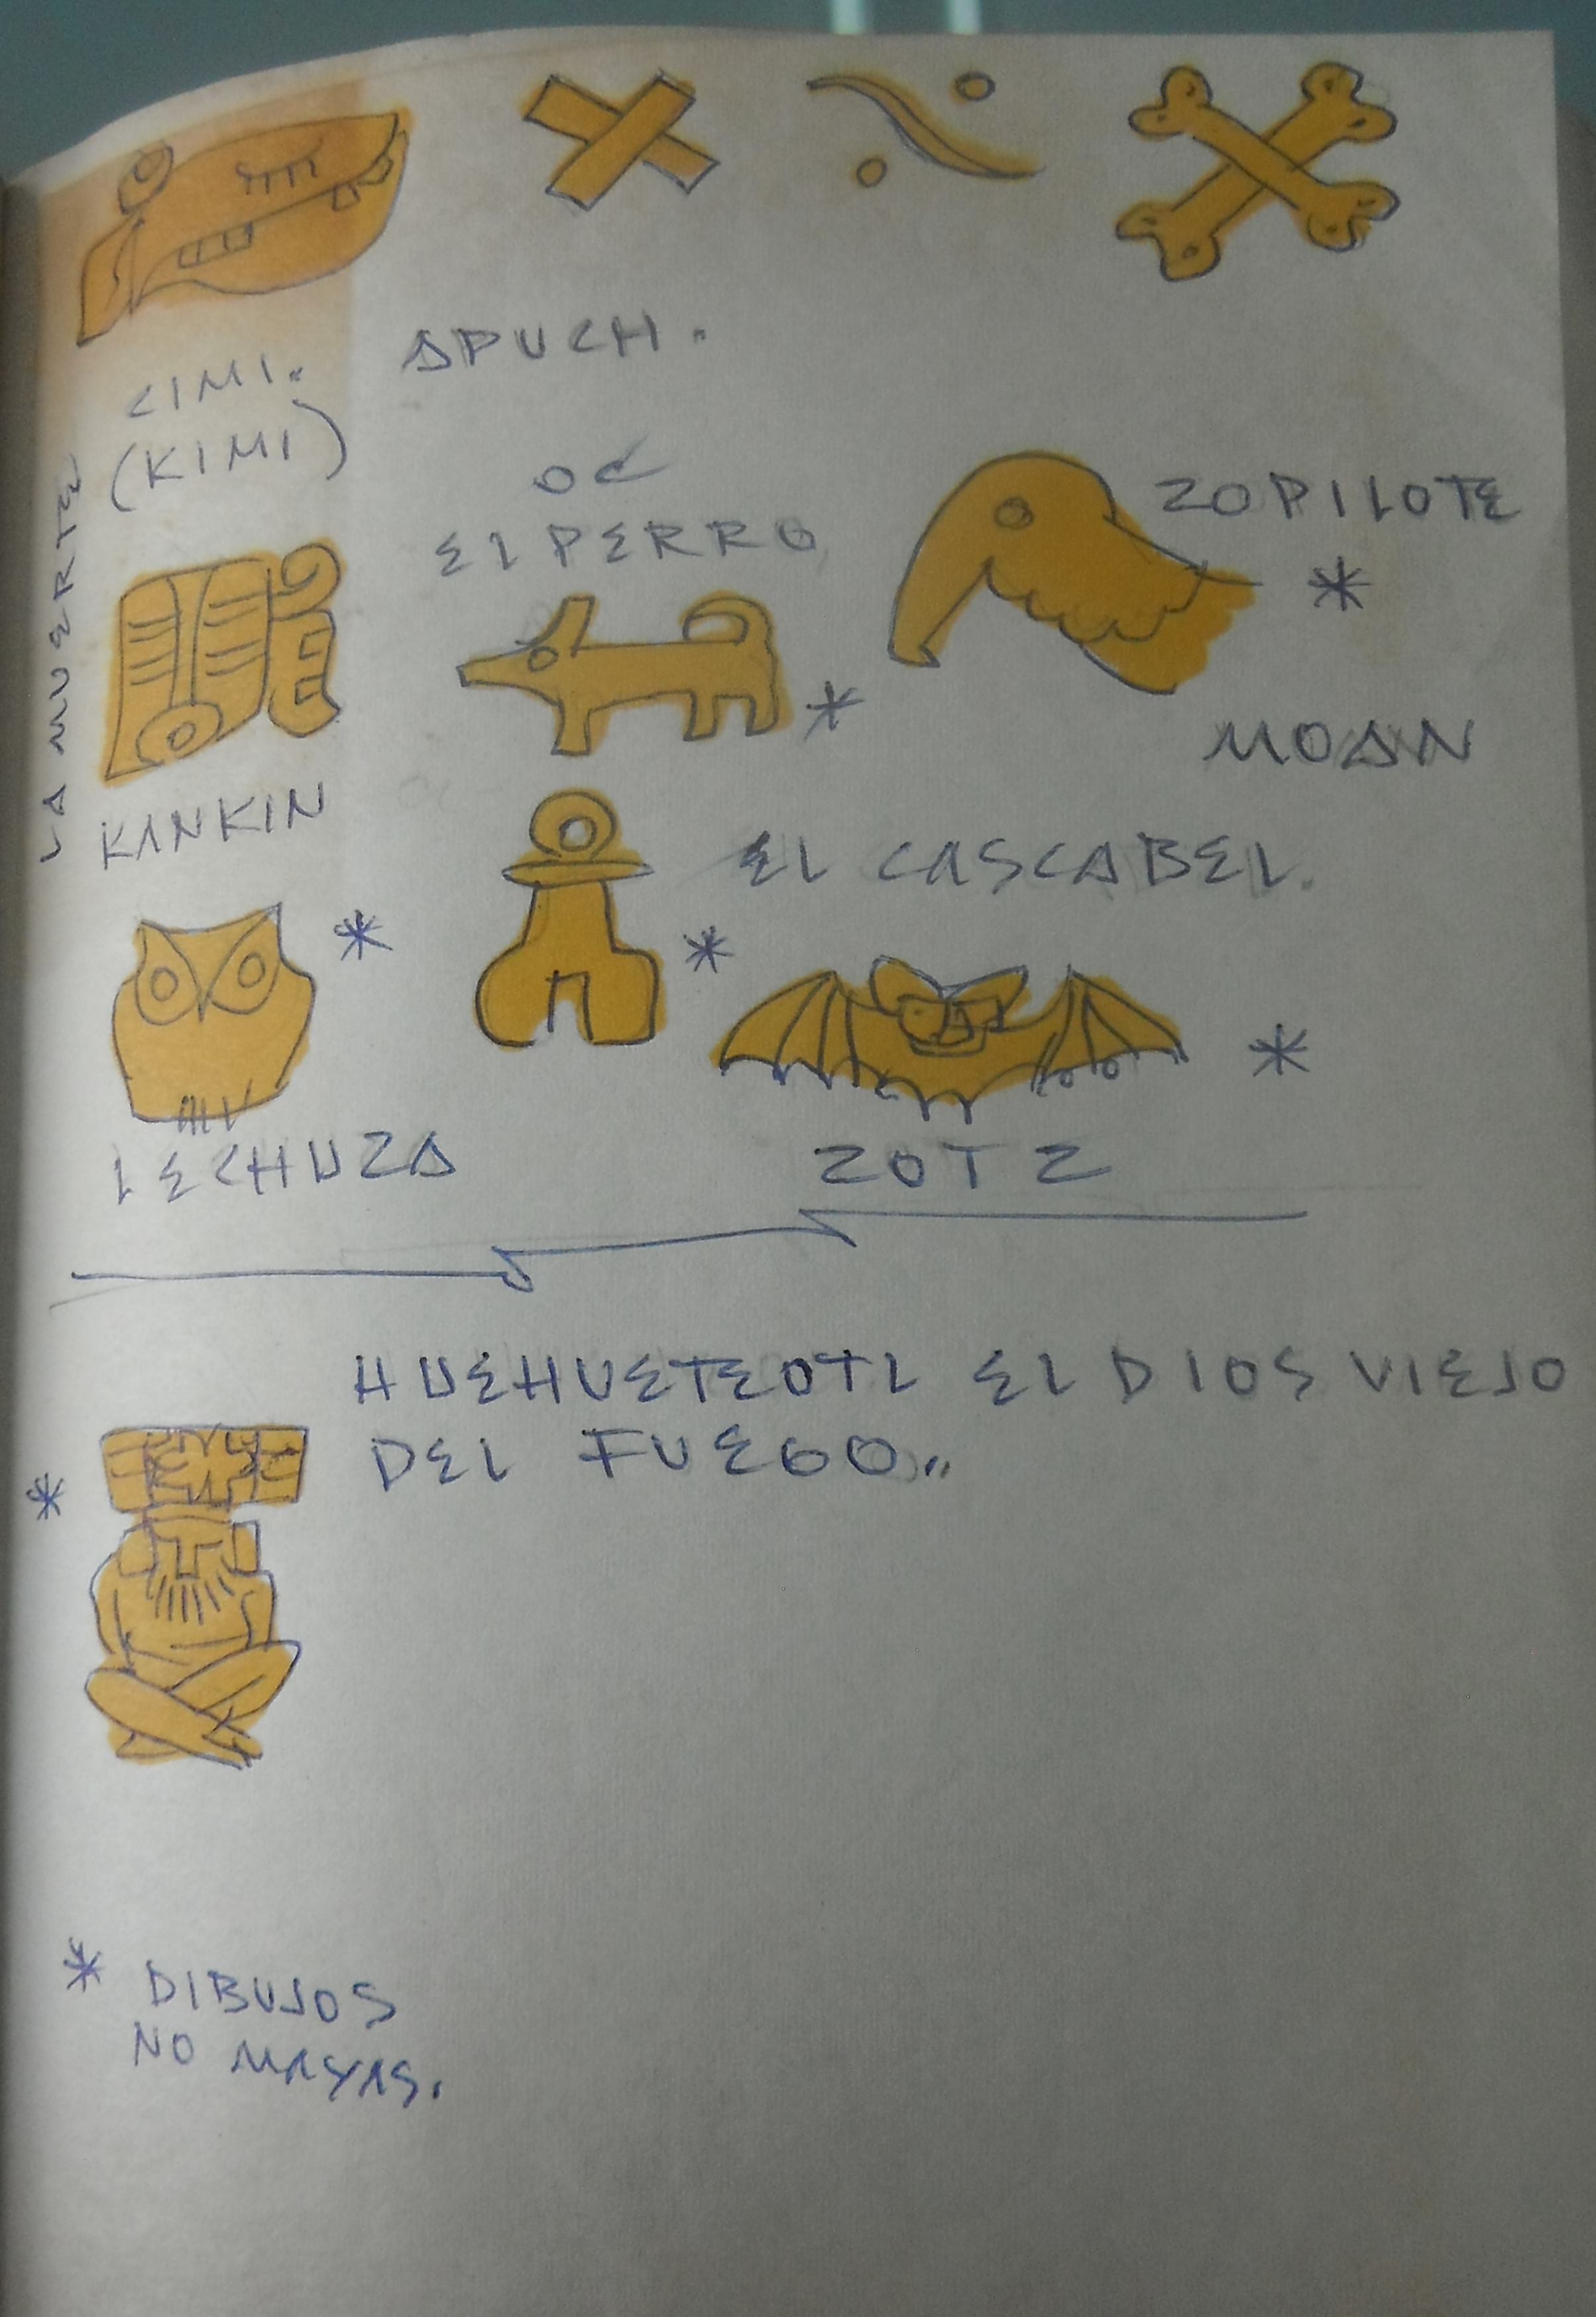 CIMI.
(KIMI)
APUCH.
LA MUERTE
OC
EL PERRO
ZOPILOTE
*
*
MOAN
KANKIN
EL CASCABEL.
*
*
*
LECHUZA
ZOTZ
HUEHUETEOTL EL DIOS VIEJO
DEL FUEGO..
*
* DIBUJOS
NO MAYAS.